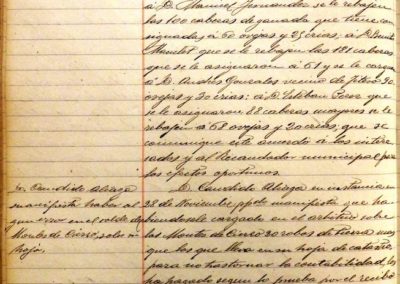 á D. Manuel Fernandez se le rebajen
las 100 cabezas de ganado que tiene con-
signadas á 60 ovejas y 25 crias; á D.
que se le rebajen las 181 cabezas
que se le asignaron á 61 y se le cargue
á D. Andres Gonzales vecino de 30
ovejas y 30 crias; á D. Esteban que
se le asignaron 88 cabezas mayores se le
rebajen á 68 ovejas y 20 crias; que se
comunique este acuerdo á los intere-
sados y al Recaudador municipal para
los efectos oportunos.
D. Candido Aleaga en instancia
28 de Noviembre ppdo manifiesta que ha-
biendosele cargado en el arbitrio sobre
los Montes de Cierzo 30 robos de tierra mas
que los que lleva en su hoja de catastro,
para no trastornar la contabilidad, los
ha pagado segun lo prueba por el recibo
D. Candido Aleaga
manifiesta haber al-
gun error en el reparto de
Montes de Cierzo, sobre su
hoja